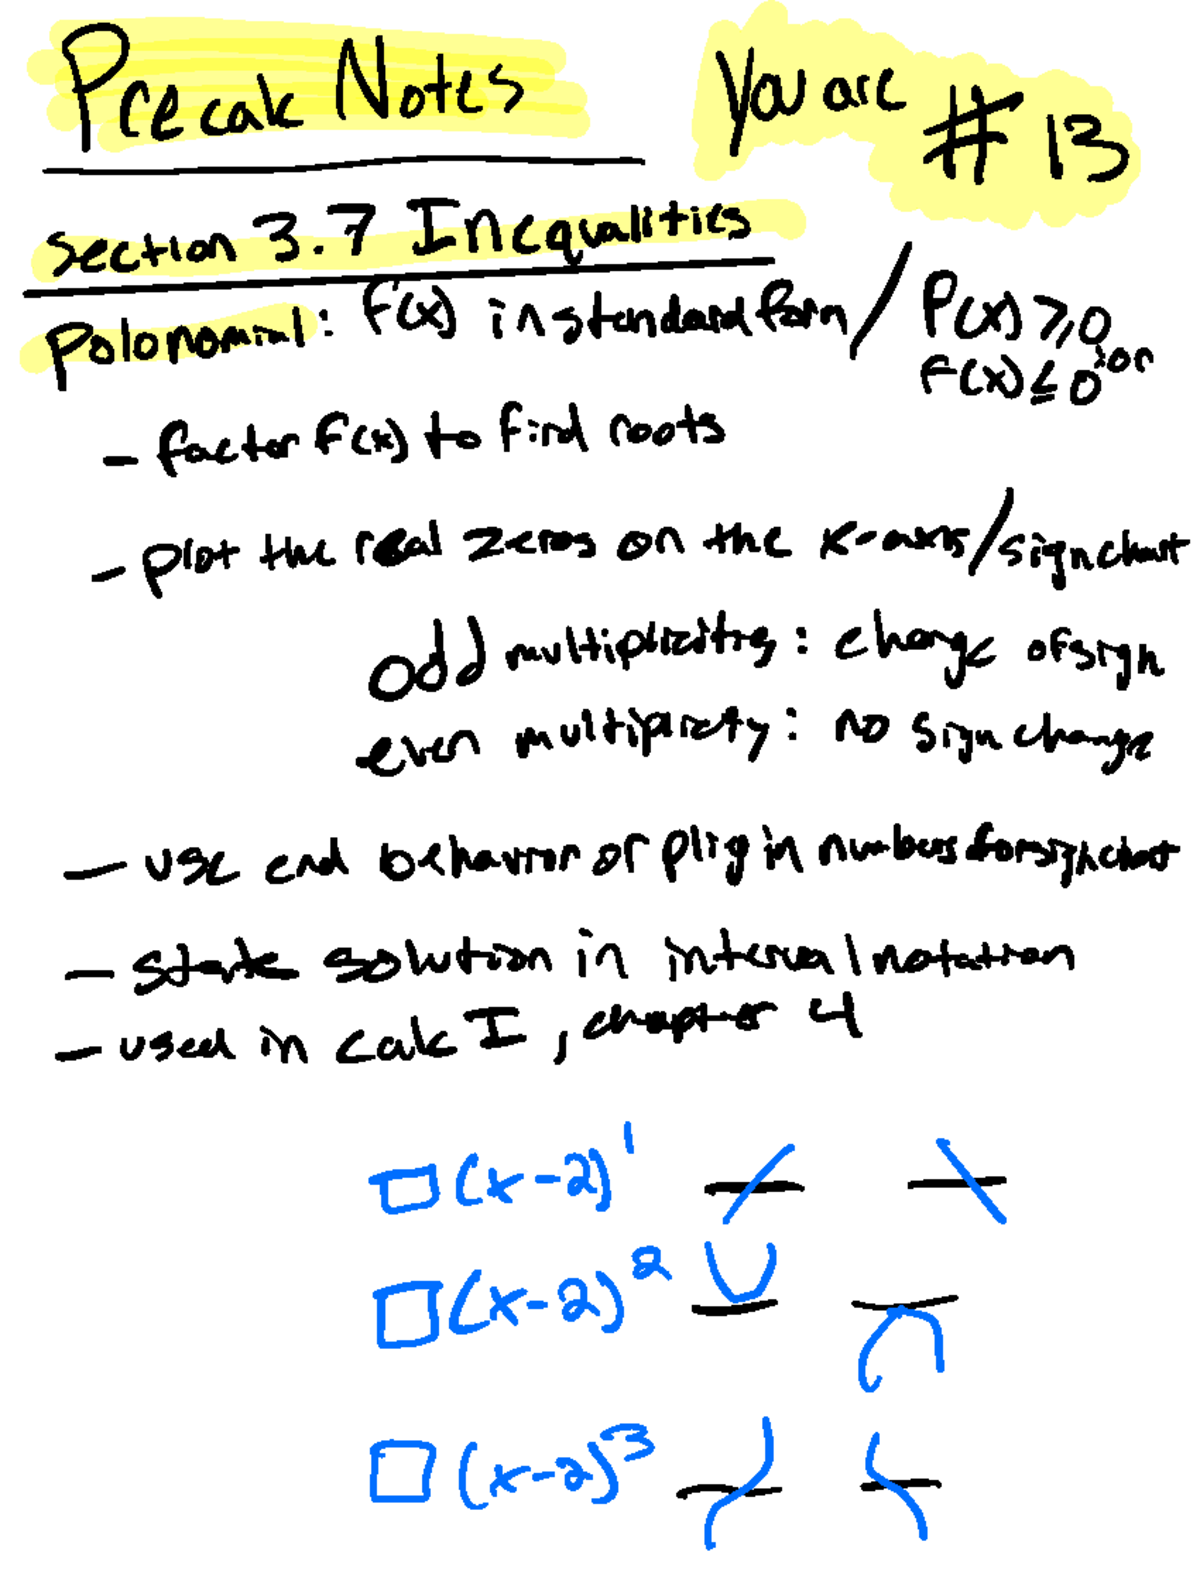 Precalc Notes
You are # 13
Section 3.7 Inequalities
Polonomial: f(x) in standard form / P(x) ≥ 0 or
f(x) ≤ 0
- factor f(x) to find roots
- plot the real zeros on the x-axis/sign chart
odd multiplicities: change of sign
even multiplicity: no sign change
- use end behavior or plug in numbers for sign chart
- state solution in interval notation
- used in calc I, chapter 4
□(x-2)¹
□(x-2)²
□(x-2)³